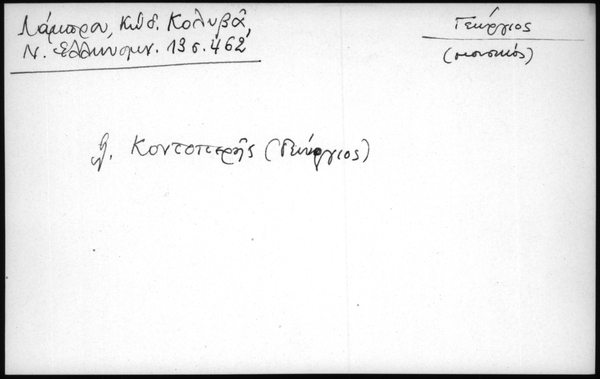 Λάμπρου, Κώδ. Κολυβᾶ,
Ν. Ἑλληνομν. 13 σ. 462
Γεώργιος
(μουσικός)
βλ. Κοντοπετρῆς (Γεώργιος)